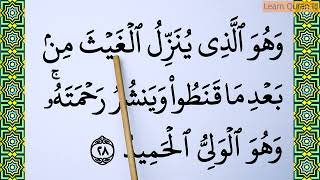 Learn Quran
وَهُوَ ٱلَّذِى يُنَزِّلُ ٱلْغَيْثَ مِنۢ
بَعْدِ مَا قَنَطُوا۟ وَيَنشُرُ رَحْمَتَهُۥ ۚ
وَهُوَ ٱلْوَلِىُّ ٱلْحَمِيدُ ٢٨